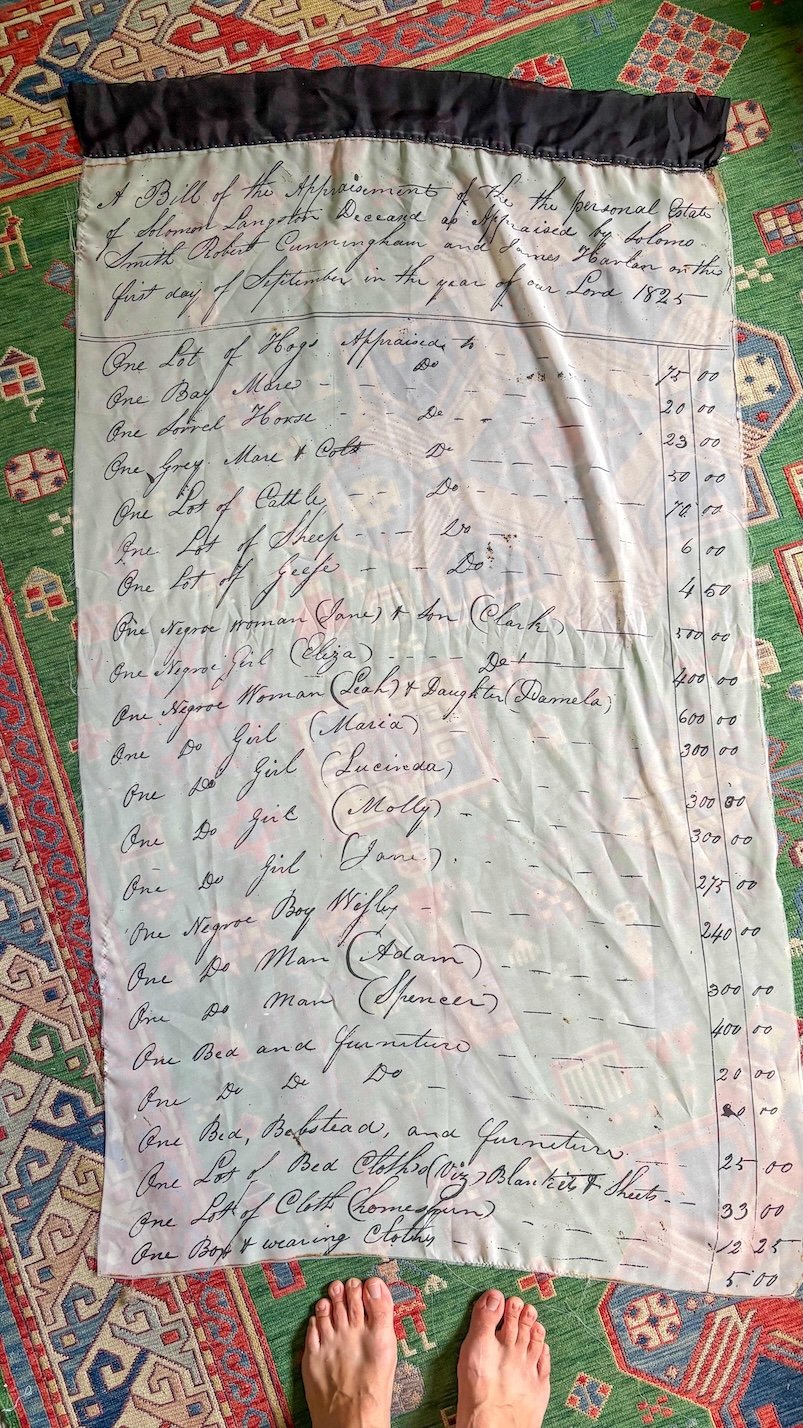 A Bill of the Appraisement of the the personal Estate
of Solomon Langston Deceasd as Appraised by Solomo
Smith Robert Cunningham and James Harlan on the
first day of September in the year of our Lord 1825
One Lot of Hogs Appraised to - - - - 75 00
One Bay Mare - - - Do 20 00
One Sorrel Horse - - - Do - - - 23 00
One Grey Mare & Colt Do - - - - 50 00
One Lot of Cattle - - Do - - - - 70 00
One Lot of Sheep - - - Do - - - - 6 00
One Lot of Geese - - Do - - - 4 50
One Negroe Woman (Jane) & Son (Clark) — 500 00
One Negroe Girl (Eliza) - - - - Do 400 00
One Negroe Woman (Leah) & Daughter (Pamela) 600 00
One Do Girl (Maria) - - - - - 300 00
One Do Girl (Lucinda) 300 00
One Do Girl (Molly) - - - - - 300 00
One Do Girl (Jane) - - - - - 275 00
One Negroe Boy Wesley - - - - - 240 00
One Do Man (Adam) - - - - 300 00
One Do Man (Spencer) - - - - 400 00
One Bed and furniture - - - - 20 00
One Do Do Do - - - - 00
One Bed, Bedstead, and furniture - - 25 00
One Lot of Bed Clothd (Viz) Blankits & Sheets - - 33 00
One Lot of Cloth (homespun) - - - 12 25
One Box & wearing Clothes - - - - 5 00